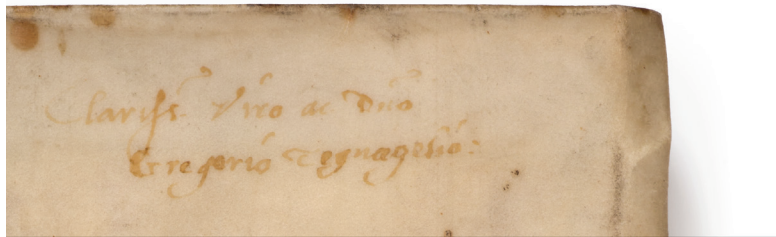 Clariss. Viro ac Dno
Gregorio Tognagelio: